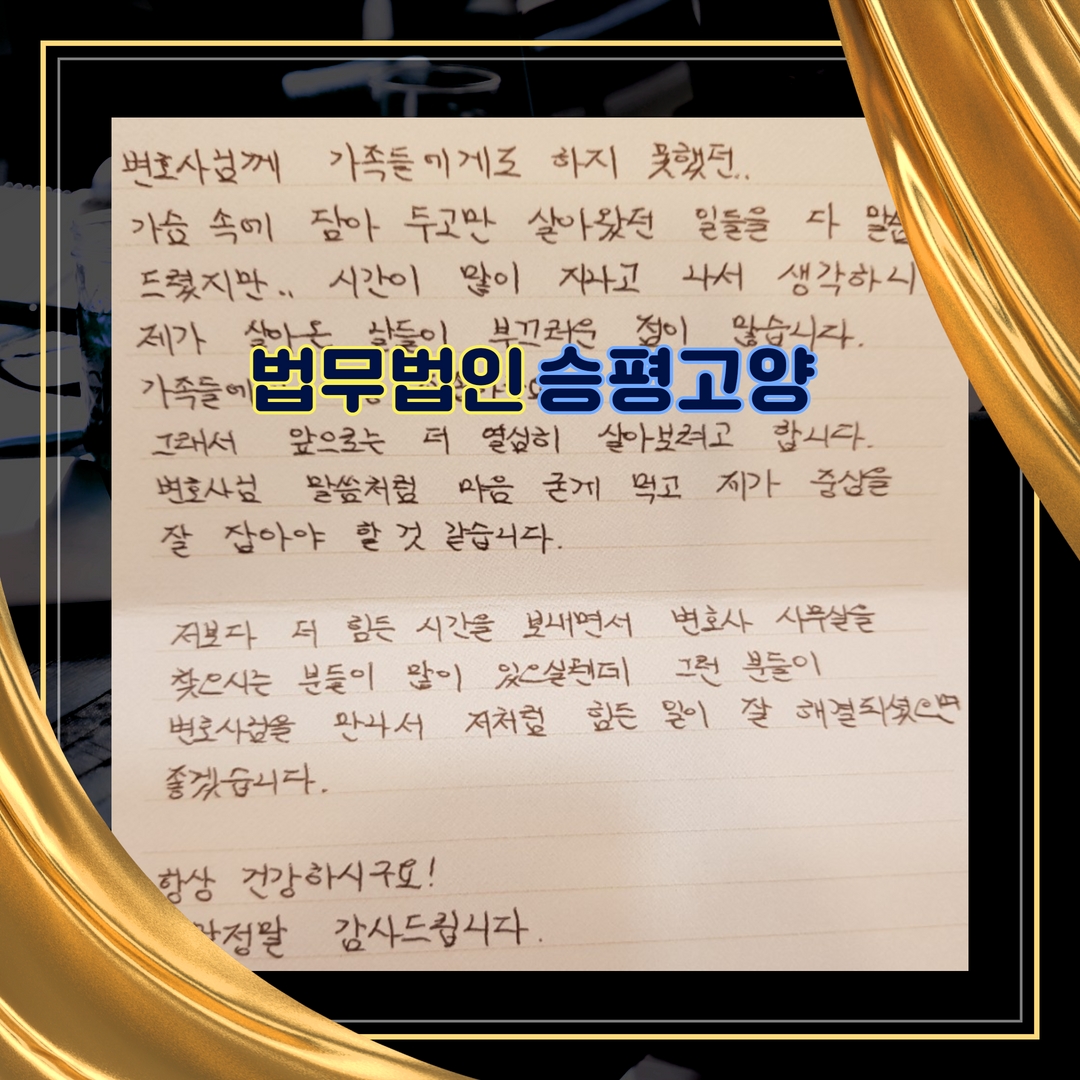 변호사님께 가족들에게도 하지 못했던..
가슴 속에 담아 두고만 살아왔던 일들을 다
드렸지만.. 시간이 많이 지나고 나서 생각하니
제가 살아온 날들이 부끄러운 점이 많습니다.
법무법인 승평고양
가족들에
그래서 앞으로는 더 열심히 살아보려고 합니다.
변호사님 말씀처럼 마음 굳게 먹고 제가 중심을
잘 잡아야 할 것 같습니다.
저보다 더 힘든 시간을 보내면서 변호사 사무실을
찾으시는 분들이 많이 있으실텐데 그런 분들이
변호사님을 만나서 저처럼 힘든 일이 잘 해결되셨으면
좋겠습니다.
항상 건강하시구요!
감사드립니다.